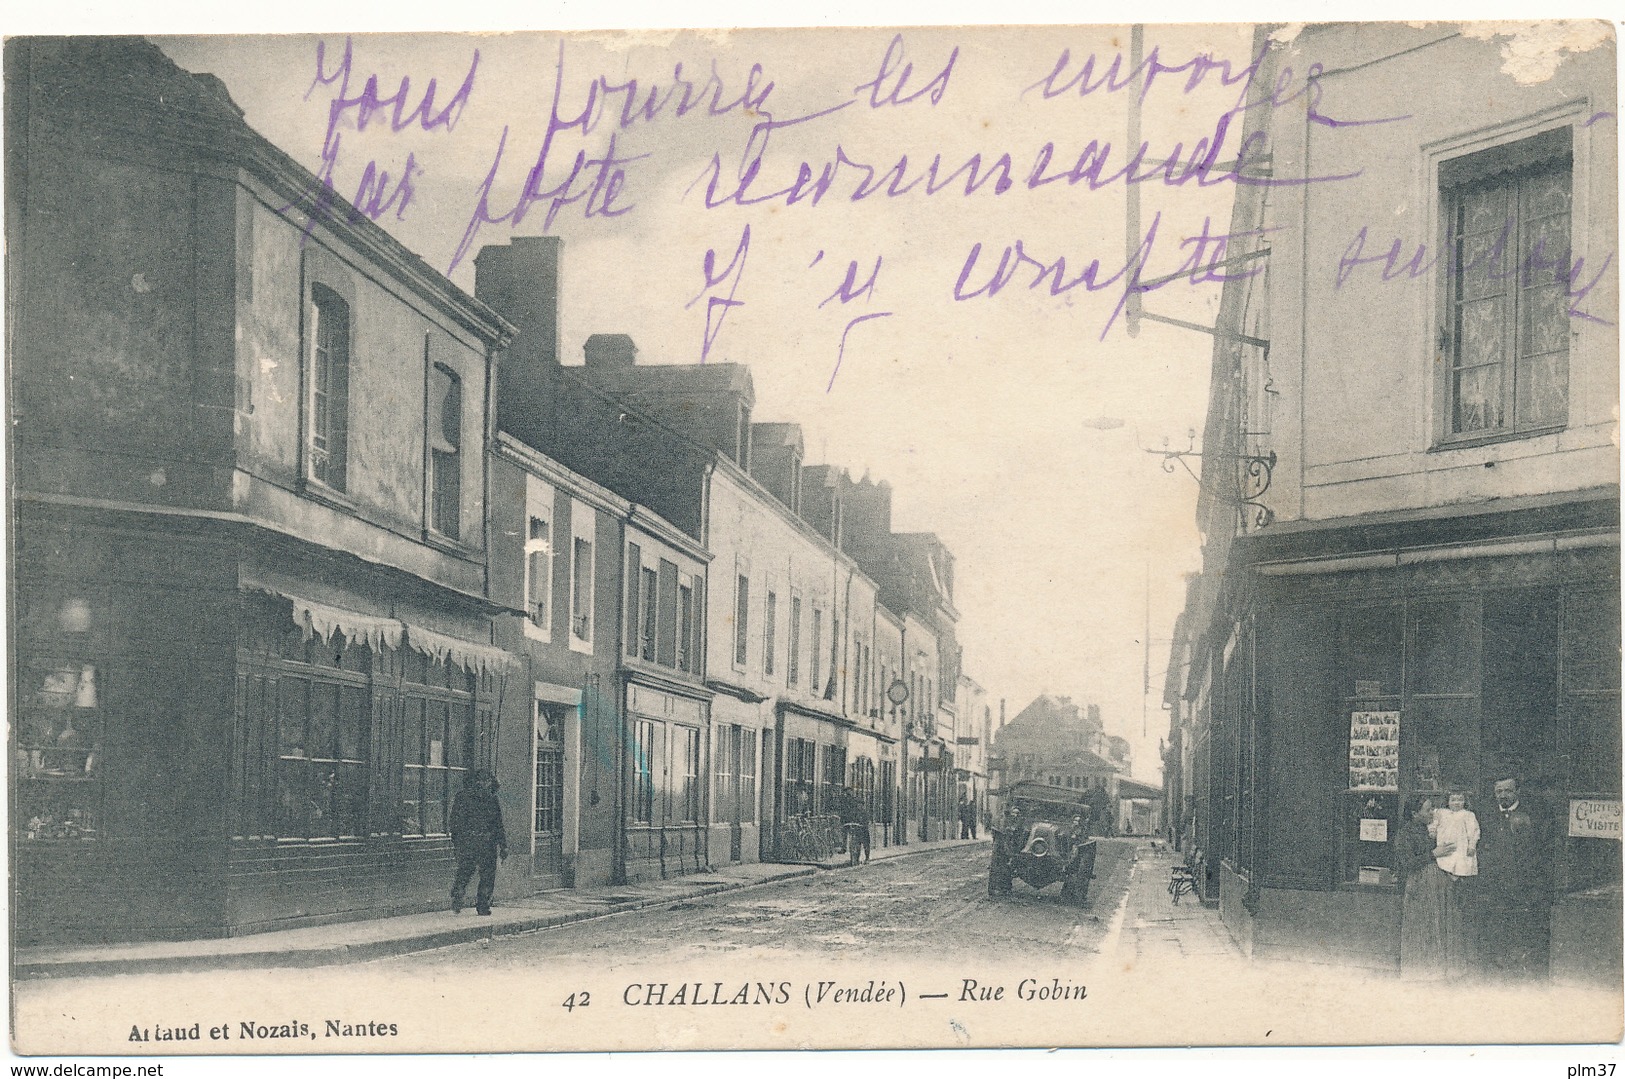 Vous pourrez les envoyer
par poste recommandé
J'y compte surtout
CARTES
VISITE
42 CHALLANS (Vendée) — Rue Gobin
Artaud et Nozais, Nantes
www.delcampe.net
plm37